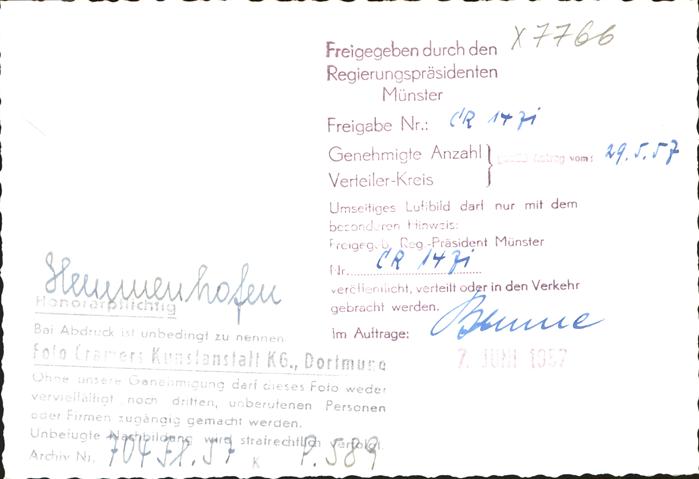 X7766
Freigegeben durch den
Regierungspräsidenten
Münster
Freigabe Nr.: CR 147i
Genehmigte Anzahl
Verteiler-Kreis
gemäß Antrag vom: 29.5.57
Umseitiges Luftbild darf nur mit dem
besonderen Hinweis:
Freigeg. d. Reg.-Präsident Münster
Nr. CR 147i
veröffentlicht, verteilt oder in den Verkehr
gebracht werden.
Im Auftrage:
7. JUNI 1957
Hemmenhofen
Honorarpflichtig
Bei Abdruck ist unbedingt zu nennen
Foto Cramers Kunstanstalt KG., Dortmund
Ohne unsere Genehmigung darf dieses Foto weder
vervielfältigt noch dritten, unberufenen Personen
oder Firmen zugängig gemacht werden.
Unbefugte Nachbildung wird strafrechtlich verfolgt.
Archiv Nr. K P.589